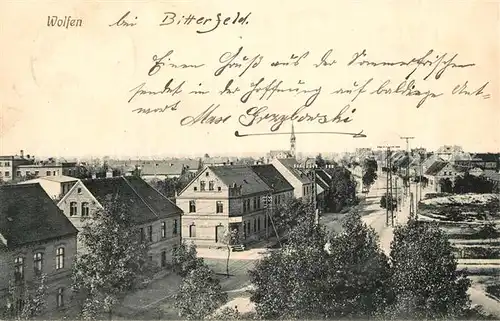 Wolfen bei Bitterfeld.
Einen Gruß aus der Sommerfrische
sendet in der Hoffnung auf baldige Ant-
wort Max Grzybowski